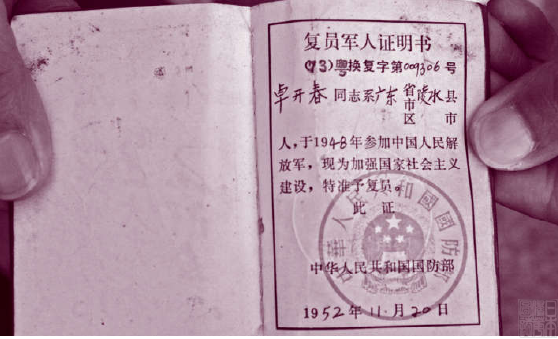 复员军人证明书
(73)粤换复字第009306号
卓开春 同志系广东 省市区 陵水 县市
人,于1948年参加中国人民解
放军,现为加强国家社会主义
建设,特准予复员。
此证
中华人民共和国国防部
中华人民共和国国防部
1952年11月20日